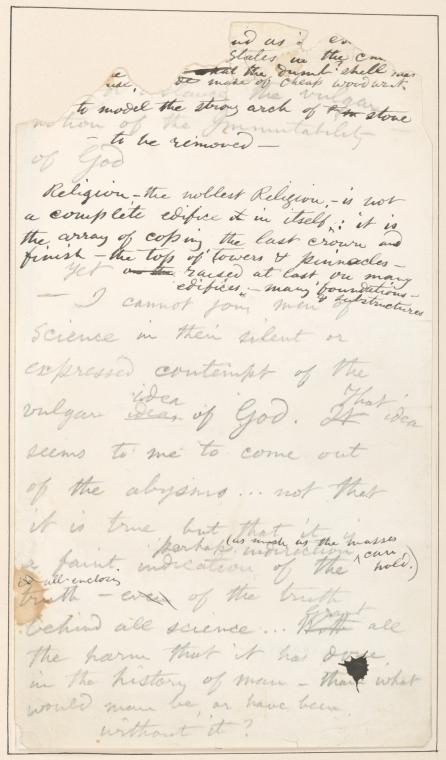 States in the
that the dumb shell was
use, made of cheap woodwork
to model the strong arch of stone
the vulgar
notion of the Immutability
— to be removed —
of God
Religion – the noblest Religion, – is not
a complete edifice in itself; it is
the array of coping, the last crown and
finish – the top of towers & pinnacles –
Yet raised at last on many
edifices, – many foundations –
& substructures
— I cannot join men of
Science in their silent or
expressed contempt of the
idea That
vulgar ideas of God. It idea
seems to me to come out
of the abysms ... not that
it is true but that it is
perhaps indirection (as much as the masses
can hold.)
a faint indication of the
& all-inclosing
truth – even of the truth
behind all science ... Grant all
the harm that it has done,
in the history of man – than what
would man be, or have been,
without it?